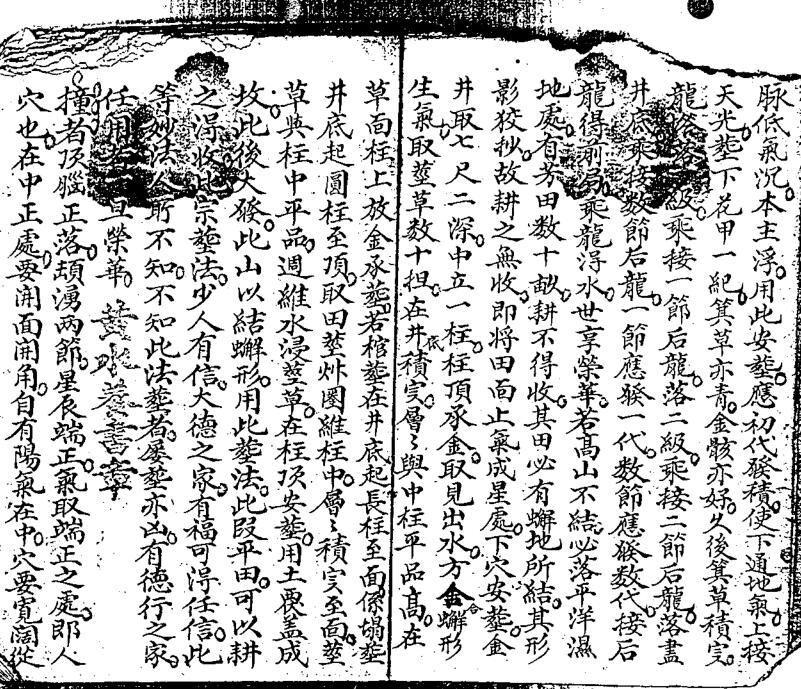 脉低氣沉本主浮用此安塟應初代發積使下通地氣上接
天光塟下花甲一紀箕草亦青金骸亦好久後箕草積实
龍格落一級乘接一節后龍落二級乘接二節后龍落盡
井底乘接数節后龍一節應發一代数節應發数代接后
龍得前局乘龍淂水世享榮華若高山不結必落平洋濕
地處有芳田数十畝耕不得收其田必有蠏地所結其形
影狡抄故耕之無收即将田面上氣成星處下穴安塟金
井取七尺二深中立一柱柱頂承金取見出水方金蠏形
生氣取塟草数十担在井底積实層〻與中柱平品高在
草面柱上放金承塟若棺塟在井底起長柱至面係塌塟
井底起圓柱至頂取田塟艸圈維柱中層〻積实至面塟
草與柱中平品週維水浸塟草在柱頂安塟用土覆盖成
坟此後大發此山以結蠏形用此塟法此段平田可以耕
之淂收此宗塟法少人有信大德之家有福可淂任信此
等妙法人所不知不知此法塟者屡塟亦凶有德行之家
任用 旦榮華 書章
撞者頂腦正落頑湧兩節星辰端正氣取端正之處即人
穴也在中正處要開面開角自有陽氣在中穴要寬闊從